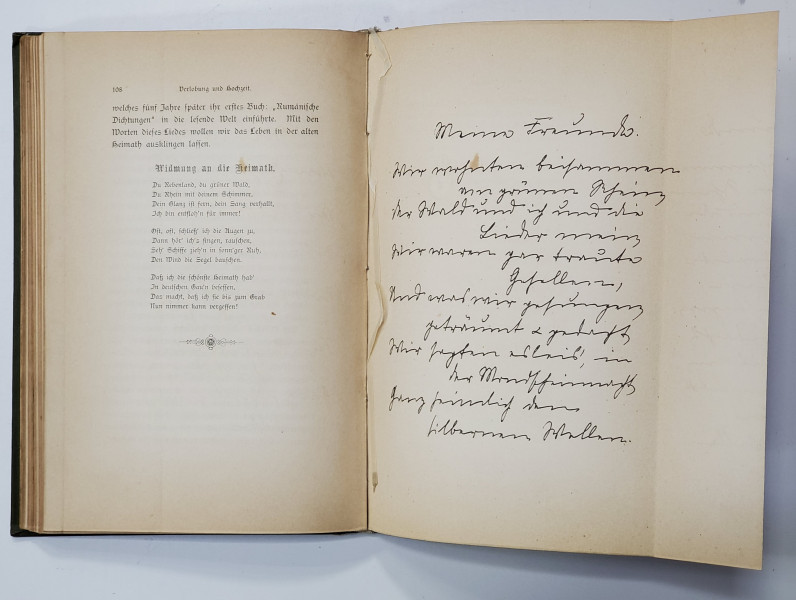 108
Verlobung und Hochzeit.
welches fünf Jahre später ihr erstes Buch: „Rumänische
Dichtungen“ in die lesende Welt einführte. Mit den
Worten dieses Liedes wollen wir das Leben in der alten
Heimath ausklingen lassen.
Widmung an die Heimath.
Du Rebenland, du grüner Wald,
Du Rhein mit deinem Schimmer,
Dein Glanz ist fern, dein Sang verhallt,
Ich bin entfloh'n für immer!
Oft, oft, schließ' ich die Augen zu,
Dann hör' ich's singen, rauschen,
Seh' Schiffe zieh'n in sonn'ger Ruh,
Den Wind die Segel bauschen.
Daß ich die schönste Heimath hab'
In deutschen Gau'n besessen,
Das macht, daß ich sie bis zum Grab
Nun nimmer kann vergessen!
Meine Freunde.
Wir wohnten beisammen
am grünen Rhein
Der Wald und ich und die
Lieder mein
Wir waren gar traute
Gesellen,
Und was wir gesungen
geträumt & gedacht
Wir sagten es leis', in
der Mondscheinnacht
Ganz heimlich den
silbernen Wellen.